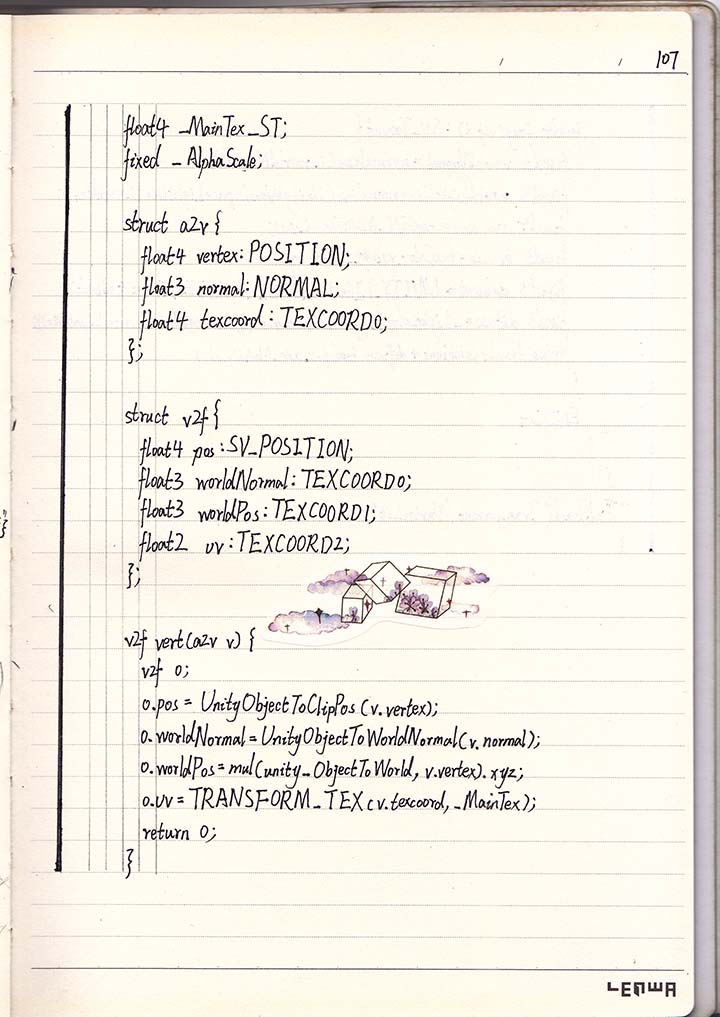 107
float4 _MainTex_ST;
fixed _AlphaScale;
struct a2v {
float4 vertex: POSITION;
float3 normal: NORMAL;
float4 texcoord : TEXCOORD0;
};
struct v2f {
float4 pos : SV_POSITION;
float3 worldNormal : TEXCOORD0;
float3 worldPos : TEXCOORD1;
float2 uv : TEXCOORD2;
};
v2f vert(a2v v) {
v2f o;
o.pos = UnityObjectToClipPos(v.vertex);
o.worldNormal = UnityObjectToWorldNormal(v.normal);
o.worldPos = mul(unity_ObjectToWorld, v.vertex).xyz;
o.uv = TRANSFORM_TEX(v.texcoord, _MainTex);
return o;
}
LENWA